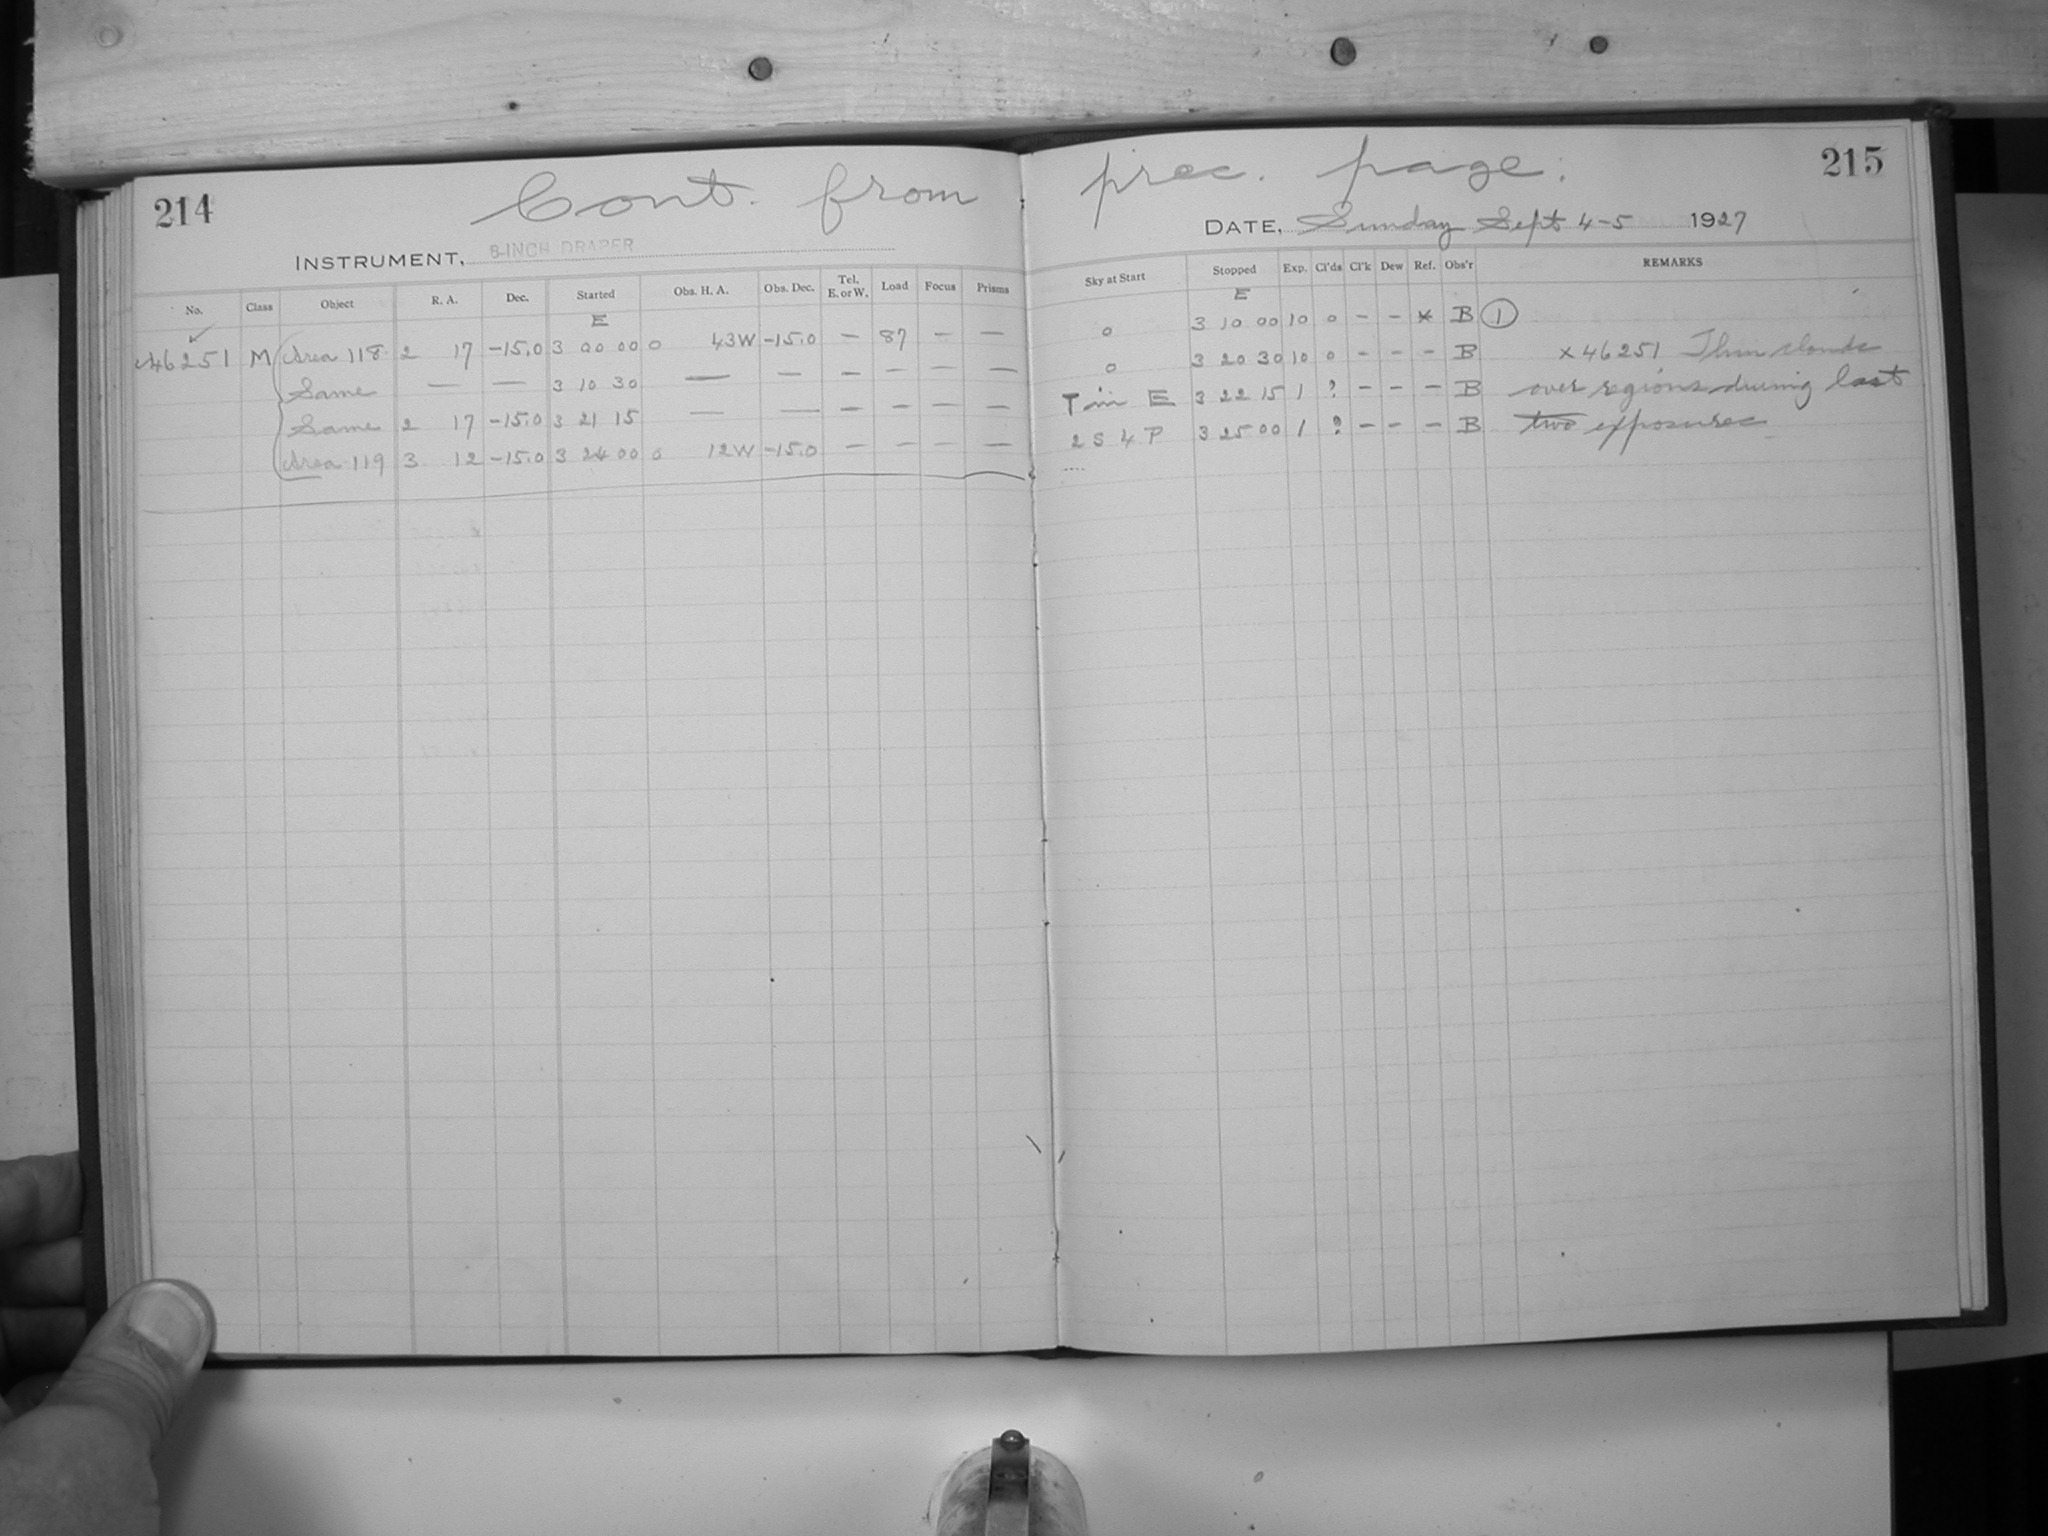 214 Cont. from prec. page. 215
INSTRUMENT, 8-INCH DRAPER DATE, Sunday Sept 4-5 1927
No. Class Object R. A. Dec. Started Obs. H. A. Obs. Dec. Tel. E. or W. Load Focus Prisms Sky at Start Stopped Exp. Cl'ds Cl'k Dew Ref. Obs'r REMARKS
E E
46251 M Area 118 2 17 -15.0 3 00 00 0 43W -15.0 — 87 — — 0 3 10 00 10 0 - - * B 1
Same — — 3 10 30 — — — — — — 0 3 20 30 10 0 - - - B x 46251 Thin clouds
Same 2 17 -15.0 3 21 15 — — — — — — T in E 3 22 15 1 ? - - - B over regions during last
Area 119 3 12 -15.0 3 24 00 0 12W -15.0 — — — — 2 S 4 P 3 25 00 1 ? - - - B two exposures